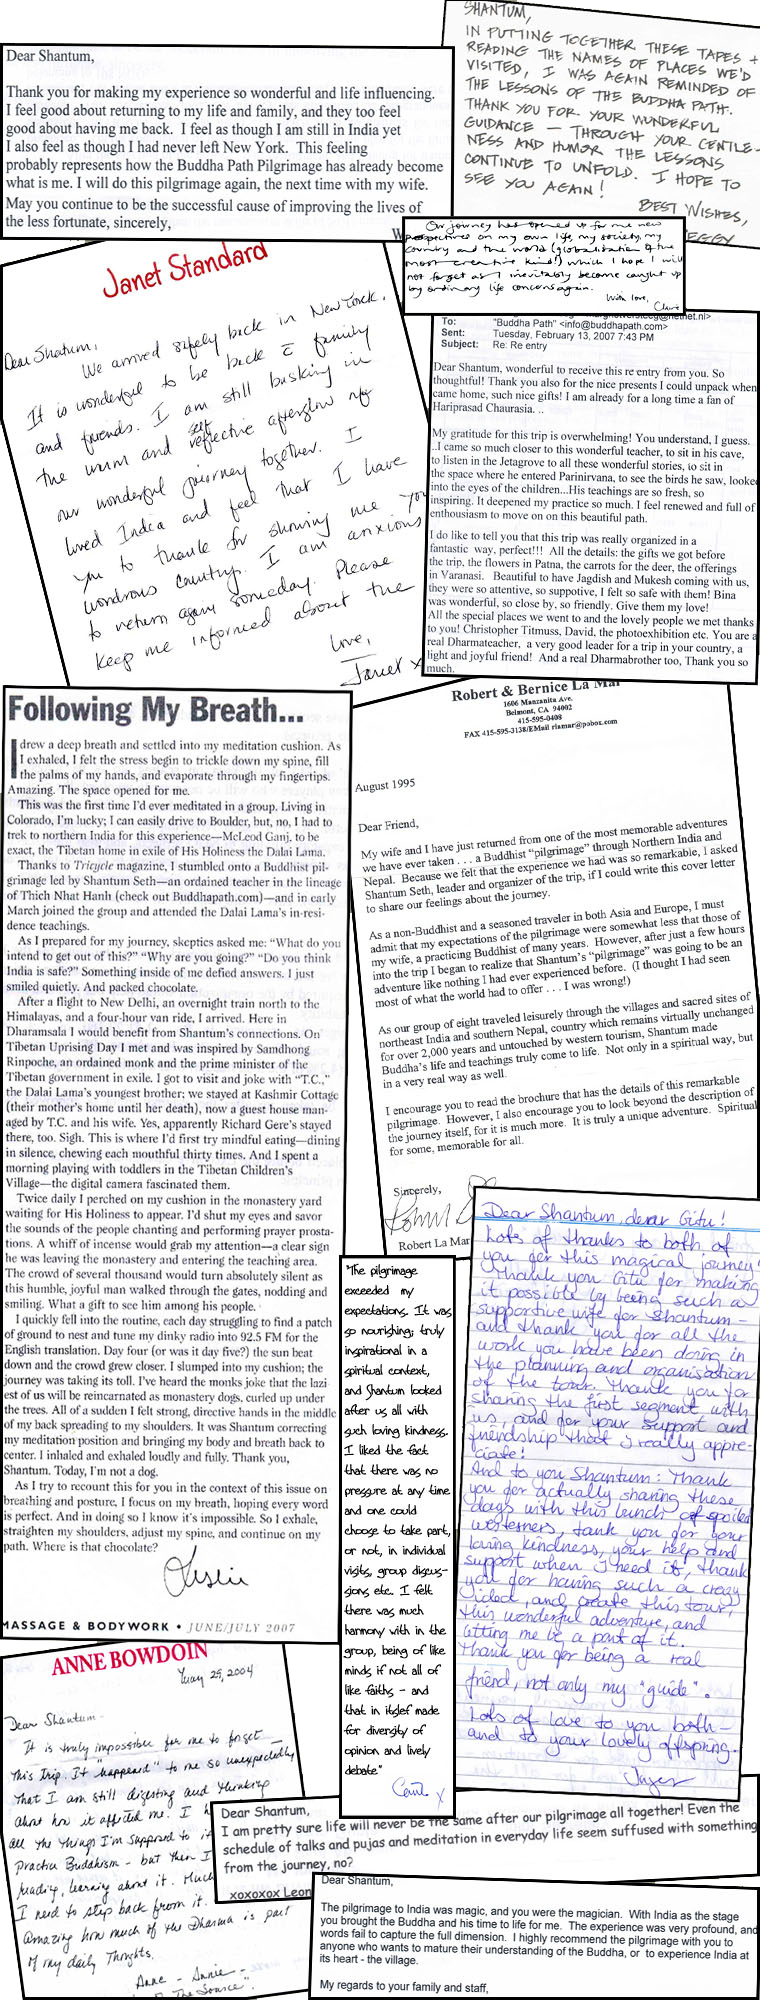 Dear Shantum,
Thank you for making my experience so wonderful and life influencing.
I feel good about returning to my life and family, and they too feel
good about having me back.  I feel as though I am still in India yet
I also feel as though I had never left New York.  This feeling
probably represents how the Buddha Path Pilgrimage has already become
what is me. I will do this pilgrimage again, the next time with my wife.
May you continue to be the successful cause of improving the lives of
the less fortunate, sincerely,
SHANTUM,
IN PUTTING TOGETHER THESE TAPES +
READING THE NAMES OF PLACES WE'D
VISITED, I WAS AGAIN REMINDED OF
THE LESSONS OF THE BUDDHA PATH.
THANK YOU FOR YOUR WONDERFUL
GUIDANCE — THROUGH YOUR GENTLE-
NESS AND HUMOR THE LESSONS
CONTINUE TO UNFOLD. I HOPE TO
SEE YOU AGAIN!
BEST WISHES,
EGGY
Our journey has opened up for me new
perspectives on my own life, my society, my
country and the world (globalisation of the
most creative kind!) which I hope I will
not forget as I inevitably become caught up
by ordinary life concerns again.
With love,
Claire
Janet Standard
Dear Shantum,
We arrived safely back in New York.
It is wonderful to be back c family
and friends. I am still basking in
the warm and self reflective afterglow of
our wonderful journey together. I
loved India and feel that I have
you to thank for showing me your
wondrous country. I am anxious
to return again someday. Please
keep me informed about the
Love,
Janet x
To: "Buddha Path" <info@buddhapath.com>
Sent: Tuesday, February 13, 2007 7:43 PM
Subject: Re: Re entry
Dear Shantum, wonderful to receive this re entry from you. So
thoughtful! Thank you also for the nice presents I could unpack when
came home, such nice gifts! I am already for a long time a fan of
Hariprasad Chaurasia. ..
My gratitude for this trip is overwhelming! You understand, I guess.
..I came so much closer to this wonderful teacher, to sit in his cave,
to listen in the Jetagrove to all these wonderful stories, to sit in
the space where he entered Parinirvana, to see the birds he saw, looked
into the eyes of the children...His teachings are so fresh, so
inspiring. It deepened my practice so much. I feel renewed and full of
enthousiasm to move on on this beautiful path.
I do like to tell you that this trip was really organized in a
fantastic  way, perfect!!!  All the details: the gifts we got before
the trip, the flowers in Patna, the carrots for the deer, the offerings
in Varanasi.   Beautiful to have Jagdish and Mukesh coming with us,
they were so attentive, so suppotive, I felt so safe with them! Bina
was wonderful, so close by, so friendly. Give them my love!
All the special places we went to and the lovely people we met thanks
to you! Christopher Titmuss, David, the photoexhibition etc. You are a
real Dharmateacher,  a very good leader for a trip in your country, a
light and joyful friend!  And a real Dharmabrother too, Thank you so
much.
Following My Breath...
I drew a deep breath and settled into my meditation cushion. As
I exhaled, I felt the stress begin to trickle down my spine, fill
the palms of my hands, and evaporate through my fingertips.
Amazing. The space opened for me.
This was the first time I'd ever meditated in a group. Living in
Colorado, I'm lucky; I can easily drive to Boulder, but, no, I had to
trek to northern India for this experience—McLeod Ganj, to be
exact, the Tibetan home in exile of His Holiness the Dalai Lama.
Thanks to Tricycle magazine, I stumbled onto a Buddhist pil-
grimage led by Shantum Seth—an ordained teacher in the lineage
of Thich Nhat Hanh (check out Buddhapath.com)—and in early
March joined the group and attended the Dalai Lama's in-resi-
dence teachings.
As I prepared for my journey, skeptics asked me: "What do you
intend to get out of this?" "Why are you going?" "Do you think
India is safe?" Something inside of me defied answers. I just
smiled quietly. And packed chocolate.
After a flight to New Delhi, an overnight train north to the
Himalayas, and a four-hour van ride, I arrived. Here in
Dharamsala I would benefit from Shantum's connections. On
Tibetan Uprising Day I met and was inspired by Samdhong
Rinpoche, an ordained monk and the prime minister of the
Tibetan government in exile. I got to visit and joke with "T.C.,"
the Dalai Lama's youngest brother; we stayed at Kashmir Cottage
(their mother's home until her death), now a guest house man-
aged by T.C. and his wife. Yes, apparently Richard Gere's stayed
there, too. Sigh. This is where I'd first try mindful eating—dining
in silence, chewing each mouthful thirty times. And I spent a
morning playing with toddlers in the Tibetan Children's
Village—the digital camera fascinated them.
Twice daily I perched on my cushion in the monastery yard
waiting for His Holiness to appear. I'd shut my eyes and savor
the sounds of the people chanting and performing prayer prostra-
tions. A whiff of incense would grab my attention—a clear sign
he was leaving the monastery and entering the teaching area.
The crowd of several thousand would turn absolutely silent as
this humble, joyful man walked through the gates, nodding and
smiling. What a gift to see him among his people.
I quickly fell into the routine, each day struggling to find a patch
of ground to nest and tune my dinky radio into 92.5 FM for the
English translation. Day four (or was it day five?) the sun beat
down and the crowd grew closer. I slumped into my cushion; the
journey was taking its toll. I've heard the monks joke that the lazi
est of us will be reincarnated as monastery dogs, curled up under
the trees. All of a sudden I felt strong, directive hands in the middle
of my back spreading to my shoulders. It was Shantum correcting
my meditation position and bringing my body and breath back to
center. I inhaled and exhaled loudly and fully. Thank you,
Shantum. Today, I'm not a dog.
As I try to recount this for you in the context of this issue on
breathing and posture, I focus on my breath, hoping every word
is perfect. And in doing so I know it's impossible. So I exhale,
straighten my shoulders, adjust my spine, and continue on my
path. Where is that chocolate?
Leslie
MASSAGE & BODYWORK • JUNE/JULY 2007
Robert & Bernice La Mar
1606 Manzanita Ave.
Belmont, CA 94002
415-595-0408
FAX 415-595-3138/EMail rlamar@pobox.com
August 1995
Dear Friend,
My wife and I have just returned from one of the most memorable adventures
we have ever taken . . . a Buddhist "pilgrimage" through Northern India and
Nepal.  Because we felt that the experience we had was so remarkable, I asked
Shantum Seth, leader and organizer of the trip, if I could write this cover letter
to share our feelings about the journey.
As a non-Buddhist and a seasoned traveler in both Asia and Europe, I must
admit that my expectations of the pilgrimage were somewhat less that those of
my wife, a practicing Buddhist of many years.  However, after just a few hours
into the trip I began to realize that Shantum's "pilgrimage" was going to be an
adventure like nothing I had ever experienced before.  (I thought I had seen
most of what the world had to offer . . . I was wrong!)
As our group of eight traveled leisurely through the villages and sacred sites of
northeast India and southern Nepal, country which remains virtually unchanged
for over 2,000 years and untouched by western tourism, Shantum made
Buddha's life and teachings truly come to life.  Not only in a spiritual way, but
in a very real way as well.
I encourage you to read the brochure that has the details of this remarkable
pilgrimage.  However, I also encourage you to look beyond the description of
the journey itself, for it is much more.  It is truly a unique adventure.  Spiritual
for some, memorable for all.
Sincerely,
Robert La Mar
"The pilgrimage
exceeded my
expectations. It was
so nourishing; truly
inspirational in a
spiritual context,
and Shantum looked
after us all with
such loving kindness.
I liked the fact
that there was no
pressure at any time
and one could
choose to take part,
or not, in individual
visits, group discus-
sions etc. I felt
there was much
harmony with in the
group, being of like
minds if not all of
like faiths - and
that in itslef made
for diversity of
opinion and lively
debate"
Dear Shantum, dear Gitu!
Lots of thanks to both of
you for this magical journey!
Thank you Gitu for making
it possible by being such a
supportive wife for Shantum -
and thank you for all the
work you have been doing in
the planning and organisation
of the tour. Thank you for
sharing the first segment with
us, and for your support and
friendship that I really appre-
ciate!
And to you Shantum: Thank
you for actually sharing these
days with this bunch of spoiled
westerners, tank you for your
loving kindness, your help and
support when I need it, thank
you for having such a crazy
idea, and create this tour,
this wonderful adventure, and
letting me be a part of it.
Thank you for being a real
friend, not only my "guide".
Lots of love to you both -
and to your lovely offspring.
ANNE BOWDOIN
May 25, 2004
Dear Shantum -
It is truly impossible for me to forget
This Trip. It "happened" to me so unexpectedly
That I am still digesting and thinking
about how it affected me. I h
all the things I'm supposed to
practice Buddhism - but then I
reading, learning about it. Much
I need to step back from it.
amazing how much of the Dharma is part
of my daily Thoughts.
Anne - Annie -
"The Source".
Dear Shantum,
I am pretty sure life will never be the same after our pilgrimage all together! Even the
schedule of talks and pujas and meditation in everyday life seem suffused with something
from the journey, no?
xoxoxox Leon
Dear Shantum,
The pilgrimage to India was magic, and you were the magician.  With India as the stage
you brought the Buddha and his time to life for me.  The experience was very profound, and
words fail to capture the full dimension.  I highly recommend the pilgrimage with you to
anyone who wants to mature their understanding of the Buddha, or  to experience India at
its heart - the village.
My regards to your family and staff,